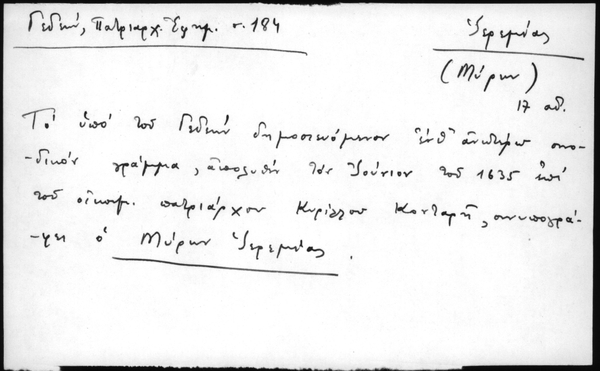 Γεδεών, Πατριαρχ. Ἐφημ. σ. 184
Ἱερεμίας
(Μύρων)
17 αἰ.
Τό ὑπό τοῦ Γεδεών δημοσιευόμενον ἔνθ' ἀνωτέρω συνο-
-δικόν γράμμα, ἀπολυθέν τόν Ἰούνιον τοῦ 1635 ἐπί
τοῦ οἰκουμ. πατριάρχου Κυρίλλου Κονταρῆ, συνυπογρά-
-φει ὁ Μύρων Ἱερεμίας.